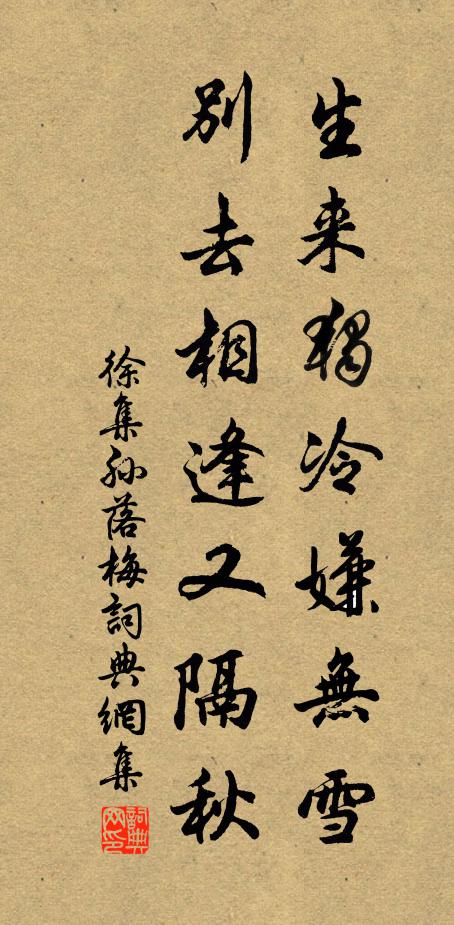 生来獨冷嫌無雪
別去相逢又隔秋
徐集孙落梅詞典網集
詞典网印